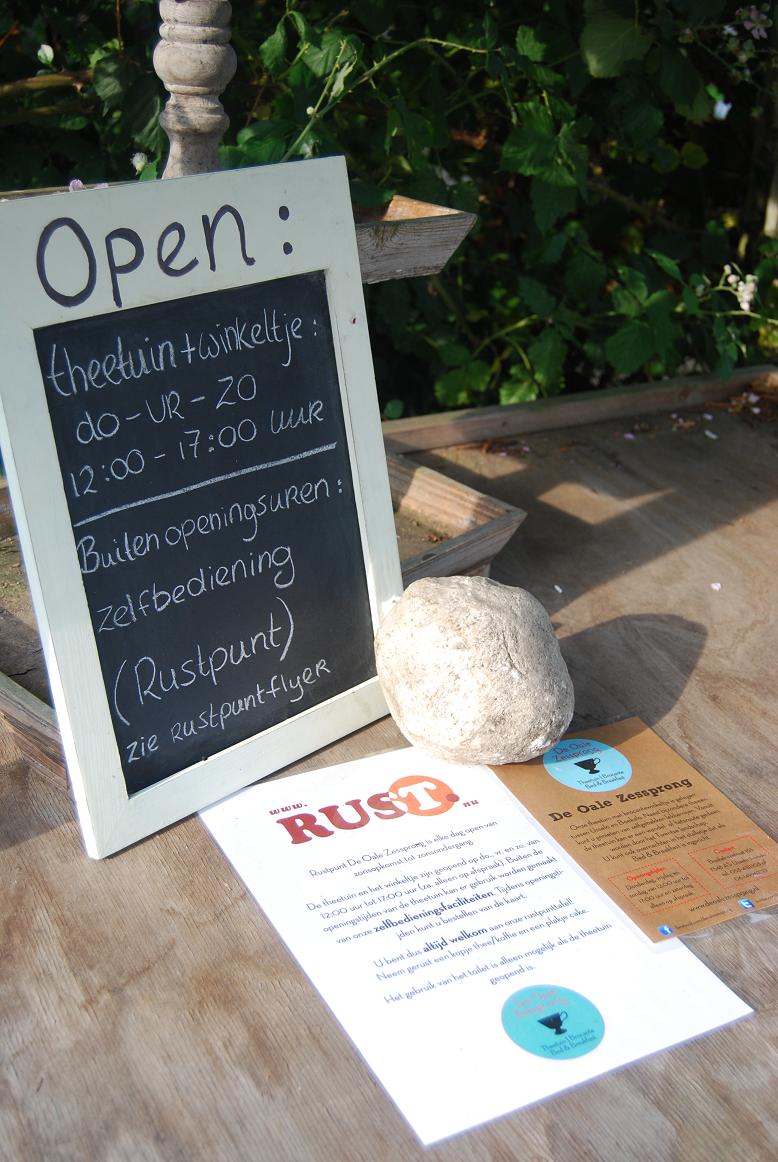 Open:
theetuin+winkeltje:
do-VR-ZO
12:00-17:00 uur
Buiten openingsuren:
zelfbediening
(Rustpunt)
zie rustpuntflyer
www.
RUST.nu
Rustpunt De Oale Zessprong is elke dag open van
zonsopkomst tot zonsondergang.
De theetuin en het winkeltje zijn geopend op do., vr. en zo. van
12:00 uur tot 17:00 uur (za. alleen op afspraak). Buiten de
openingstijden van de theetuin kan er gebruik worden gemaakt
van onze zelfbedieningsfaciliteiten. Tijdens openingstij-
den kunt u bestellen van de kaart.
U bent dus altijd welkom aan onze rustpunttafel!
Neem gerust een kopje thee/koffie en een plakje cake.
Het gebruik van het toilet is alleen mogelijk als de theetuin
geopend is.
De Oale
Zessprong
Theetuin | Brocante
Bed & Breakfast
De Oale
Zessprong
Theetuin | Brocante
Bed & Breakfast
De Oale Zessprong
Openingstijden
Donderdag, vrijdag en
zondag van 12:00 uur tot
17:00 uur en zaterdag
alleen op afspraak
Contact